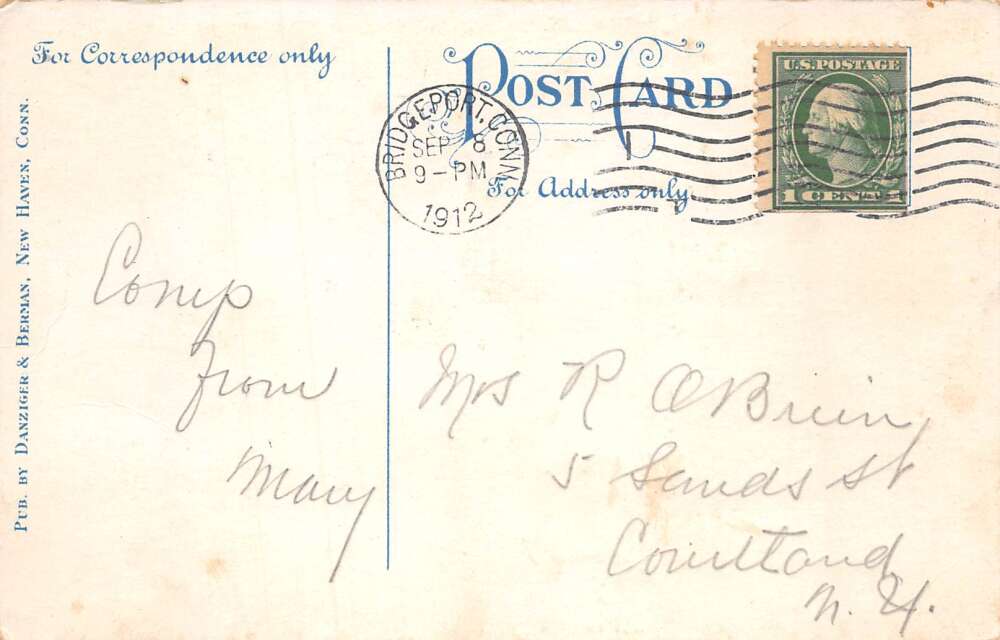 For Correspondence only
POST CARD
For Address only
PUB. BY DANZIGER & BERMAN, NEW HAVEN, CONN.
BRIDGEPORT, CONN.
SEP 8
9-PM
1912
U.S. POSTAGE
1 CENT
Comp
from
Mary
Mrs R O'Brien,
5 Sands St
Courtland
N. Y.